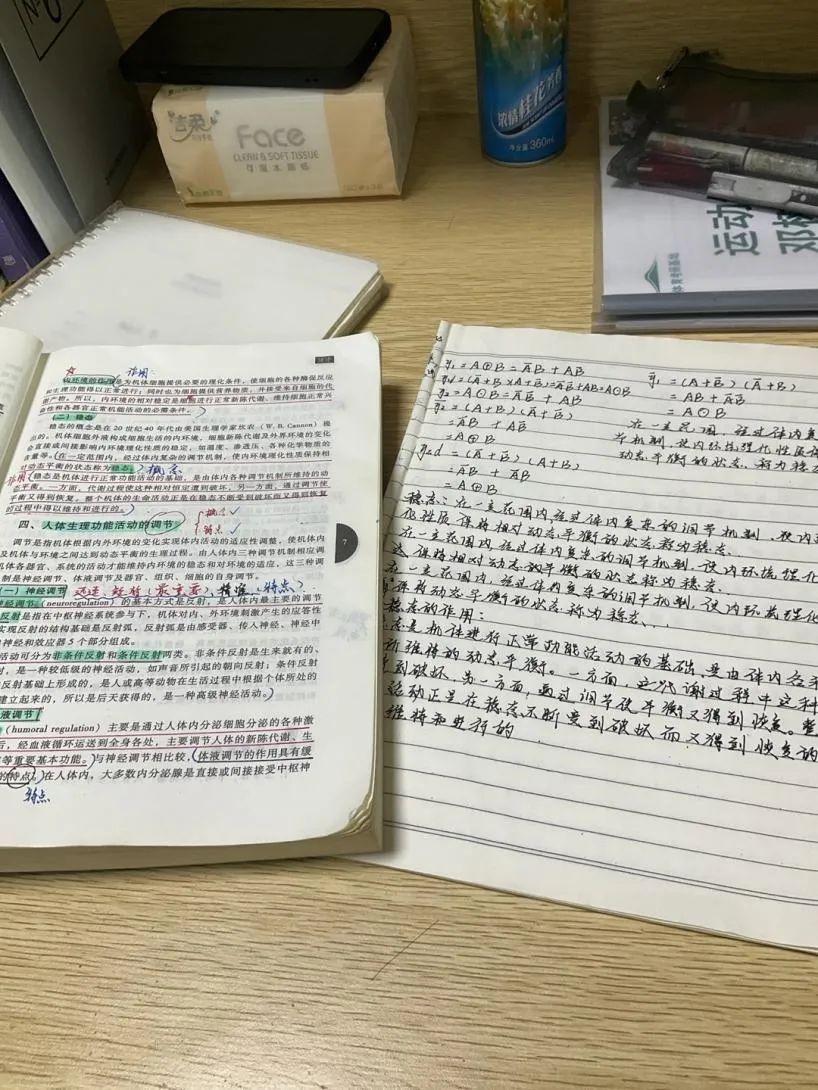 洁柔
Face
CLEAN & SOFT TISSUE
可湿水面纸
浓情桂花
净含量 360ml
运动
体育考研基地
绪论
作用:
内环境的作用是为机体细胞提供必要的理化条件,使细胞的各种酶促反应
和生理功能得以正常进行;同时也为细胞提供营养物质,并接受来自细胞的代
谢产物。所以,内环境的相对稳定是细胞进行正常新陈代谢、维持细胞正常兴
奋性和各器官正常机能活动的必需条件。
(二)稳态
稳态的概念是在 20 世纪 40 年代由美国生理学家坎农(W. B. Cannon)提
出的。机体细胞外液构成细胞生活的内环境,细胞新陈代谢及外界环境的变化
会直接或间接影响内环境理化性质的稳定,如温度、渗透压、各种化学物质的
含量等。(在一定范围内,经过体内复杂的调节机制,使内环境理化性质保持相
对动态平衡的状态称为稳态。)概念
作用(稳态是机体进行正常功能活动的基础,是由体内各种调节机制所维持的动
态平衡。一方面,代谢过程使这种相对恒定遭到破坏,另一方面,通过调节使
平衡又得到恢复。整个机体的生命活动正是在稳态不断受到破坏而又得到恢复
的过程中得以维持和进行的。)
四、人体生理功能活动的调节 概点✓
特点✓
调节是指机体根据内外环境的变化实现体内活动的适应性调整,使机体内
及机体与环境之间达到动态平衡的生理过程。由人体内三种调节机制相应调
机体各器官、系统的活动才能维持内环境的稳态和对环境的适应,这三种调
制是神经调节、体液调节及器官、组织、细胞的自身调节。
7
(一)神经调节 迅速 短暂(最重要) 精准(特点)
神经调节(neuroregulation)的基本方式是反射,是人体内最主要的调节
反射是指在中枢神经系统参与下,机体对内、外环境刺激产生的应答性
实现反射的结构基础是反射弧。反射弧是由感受器、传入神经、神经中
神经和效应器 5 个部分组成。
活动可分为非条件反射和条件反射两类。非条件反射是生来就有的、
射,是一种较低级的神经活动,如声音所引起的朝向反射;条件反射
反射基础上形成的,是人或高等动物在生活过程中根据个体所处的
建立起来的,所以是后天获得的,是一种高级神经活动。)
液调节
(humoral regulation)主要是通过人体内分泌细胞分泌的各种激
后,经血液循环运送到全身各处,主要调节人体的新陈代谢、生
等重要基本功能。)与神经调节相比较,(体液调节的作用具有缓
的特点。)在人体内,大多数内分泌腺是直接或间接接受中枢神
特点
y₁ = A⊕B = A̅B + AB̅
y₁d = (A+B)(A̅+B̅) = A̅B̅+AB = A⊙B
y₂ = A⊙B = A̅B̅ + AB
y₂ = (A̅+B)(A+B̅)
= A̅B̅ + AB
= A⊕B
y₂d = (A̅+B̅)(A+B)
= A̅B + AB̅
= A⊕B
y̅₁ = (A+B̅)(A̅+B)
= AB + A̅B̅
= A⊙B
在一定范围,经过体内复
节机制,使内环境理化性质保
动态平衡的状态,称为稳态
稳态:在一定范围内,经过体内复杂的调节机制,使内
化性质保持相对动态平衡的状态称为稳态.
在一定范围内,经过体内复杂的调节机制,使内环境理化
达保持相对动态的平衡的状态称为稳态.
在一定范围内,经过体内复杂的调节机制,使内环境理化
保持动态平衡的状态称为稳态、、.
稳态的作用:
态是机体进行正常功能活动的基础,是由体内各
所维持的动态平衡。一方面,这代谢过程中这种
到破坏,另一方面,通过调节使平衡又得到恢复。整
活动正是在稳态不断受到破坏而又得到恢复的
维持和进行的